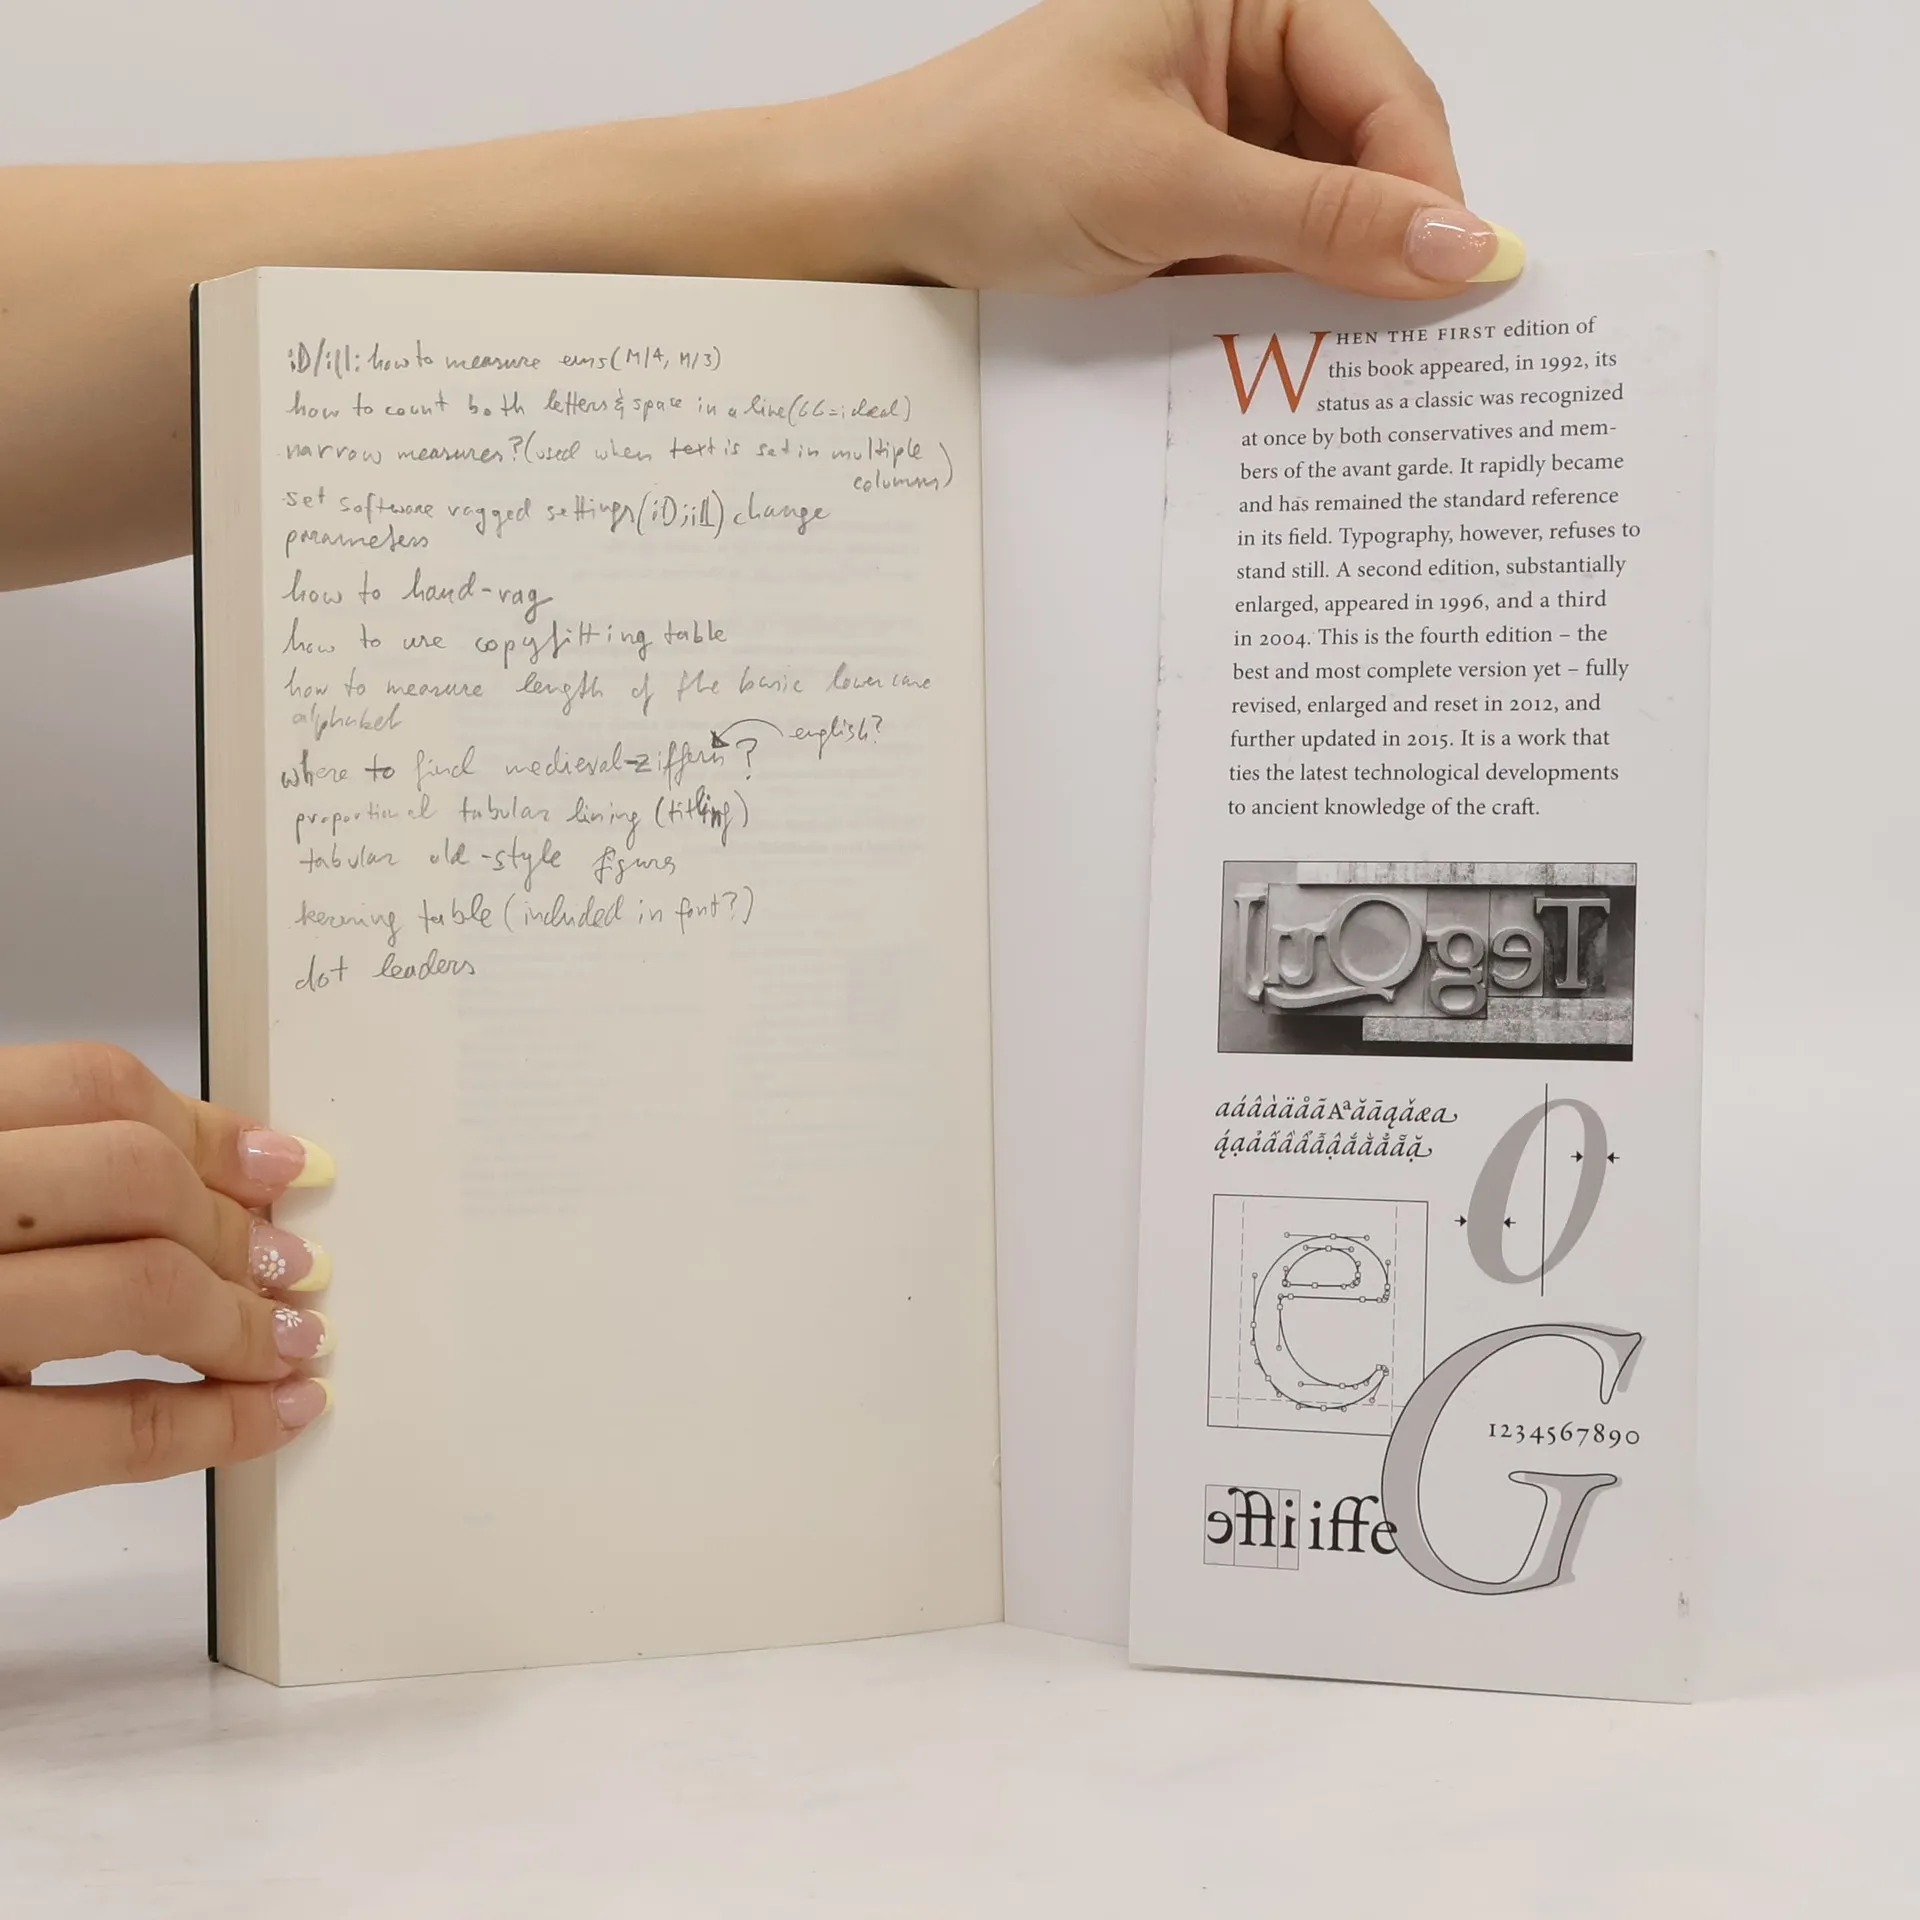 iD/ill: how to measure ems (M/4, M/3)
how to count both letters & space in a line (66=ideal)
narrow measures? (used when text is set in multiple
columns)
set software ragged settings (iD; ill) change
parameters
how to hand-rag
how to use copyfitting table
how to measure length of the basic lowercase
alphabet
english?
where to find medieval-ziffern?
proportional tabular lining (titling)
tabular old-style figures
kerning table (included in font?)
dot leaders
WHEN THE FIRST edition of
this book appeared, in 1992, its
status as a classic was recognized
at once by both conservatives and mem-
bers of the avant garde. It rapidly became
and has remained the standard reference
in its field. Typography, however, refuses to
stand still. A second edition, substantially
enlarged, appeared in 1996, and a third
in 2004. This is the fourth edition – the
best and most complete version yet – fully
revised, enlarged and reset in 2012, and
further updated in 2015. It is a work that
ties the latest technological developments
to ancient knowledge of the craft.
e
O
G
1234567890
iffe